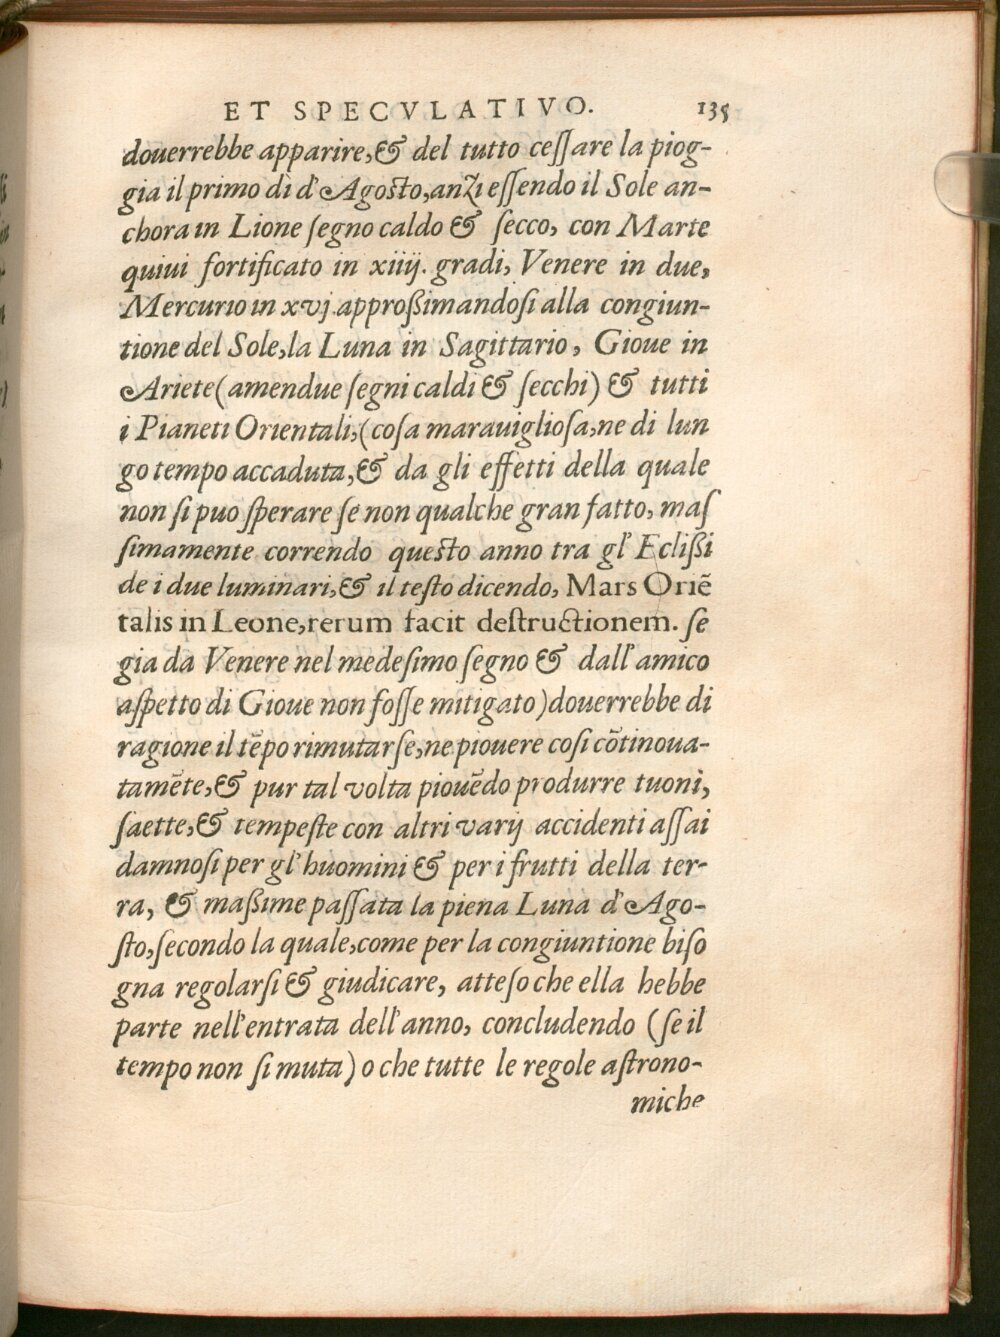 ET SPECVLATIVO. 135
douerrebbe apparire,& del tutto ceſſare la piog-
gia il primo di d'Agoſto,anzi eſſendo il Sole an-
chora in Lione ſegno caldo & ſecco, con Marte
quiui fortificato in xiiij. gradi, Venere in due,
Mercurio in xvj.approßimandoſi alla congiun-
tione del Sole,la Luna in Sagittario, Gioue in
Ariete(amendue ſegni caldi & ſecchi) & tutti
i Pianeti Orientali,(coſa marauiglioſa,ne di lun
go tempo accaduta,& da gli effetti della quale
non ſi può ſperare ſe non qualche gran fatto, maſ
ſimamente correndo queſto anno tra gl'Eclißi
de i due luminari,& il teſto dicendo, Mars Oriẽ
talis in Leone,rerum facit deſtructionem. ſe
gia da Venere nel medeſimo ſegno & dall'amico
aſpetto di Gioue non foſſe mitigato)douerrebbe di
ragione il tẽpo rimutarſe,ne piouere coſi cõtinoua-
tamẽte,& pur tal volta piouẽdo produrre tuoni,
ſaette,& tempeſte con altri varij accidenti aſſai
damnoſi per gl'huomini & per i frutti della ter-
ra, & maßime paſſata la piena Luna d'Ago-
ſto,ſecondo la quale,come per la congiuntione biſo
gna regolarſi & giudicare, atteſo che ella hebbe
parte nell'entrata dell'anno, concludendo (ſe il
tempo non ſi muta) o che tutte le regole aſtrono-
miche